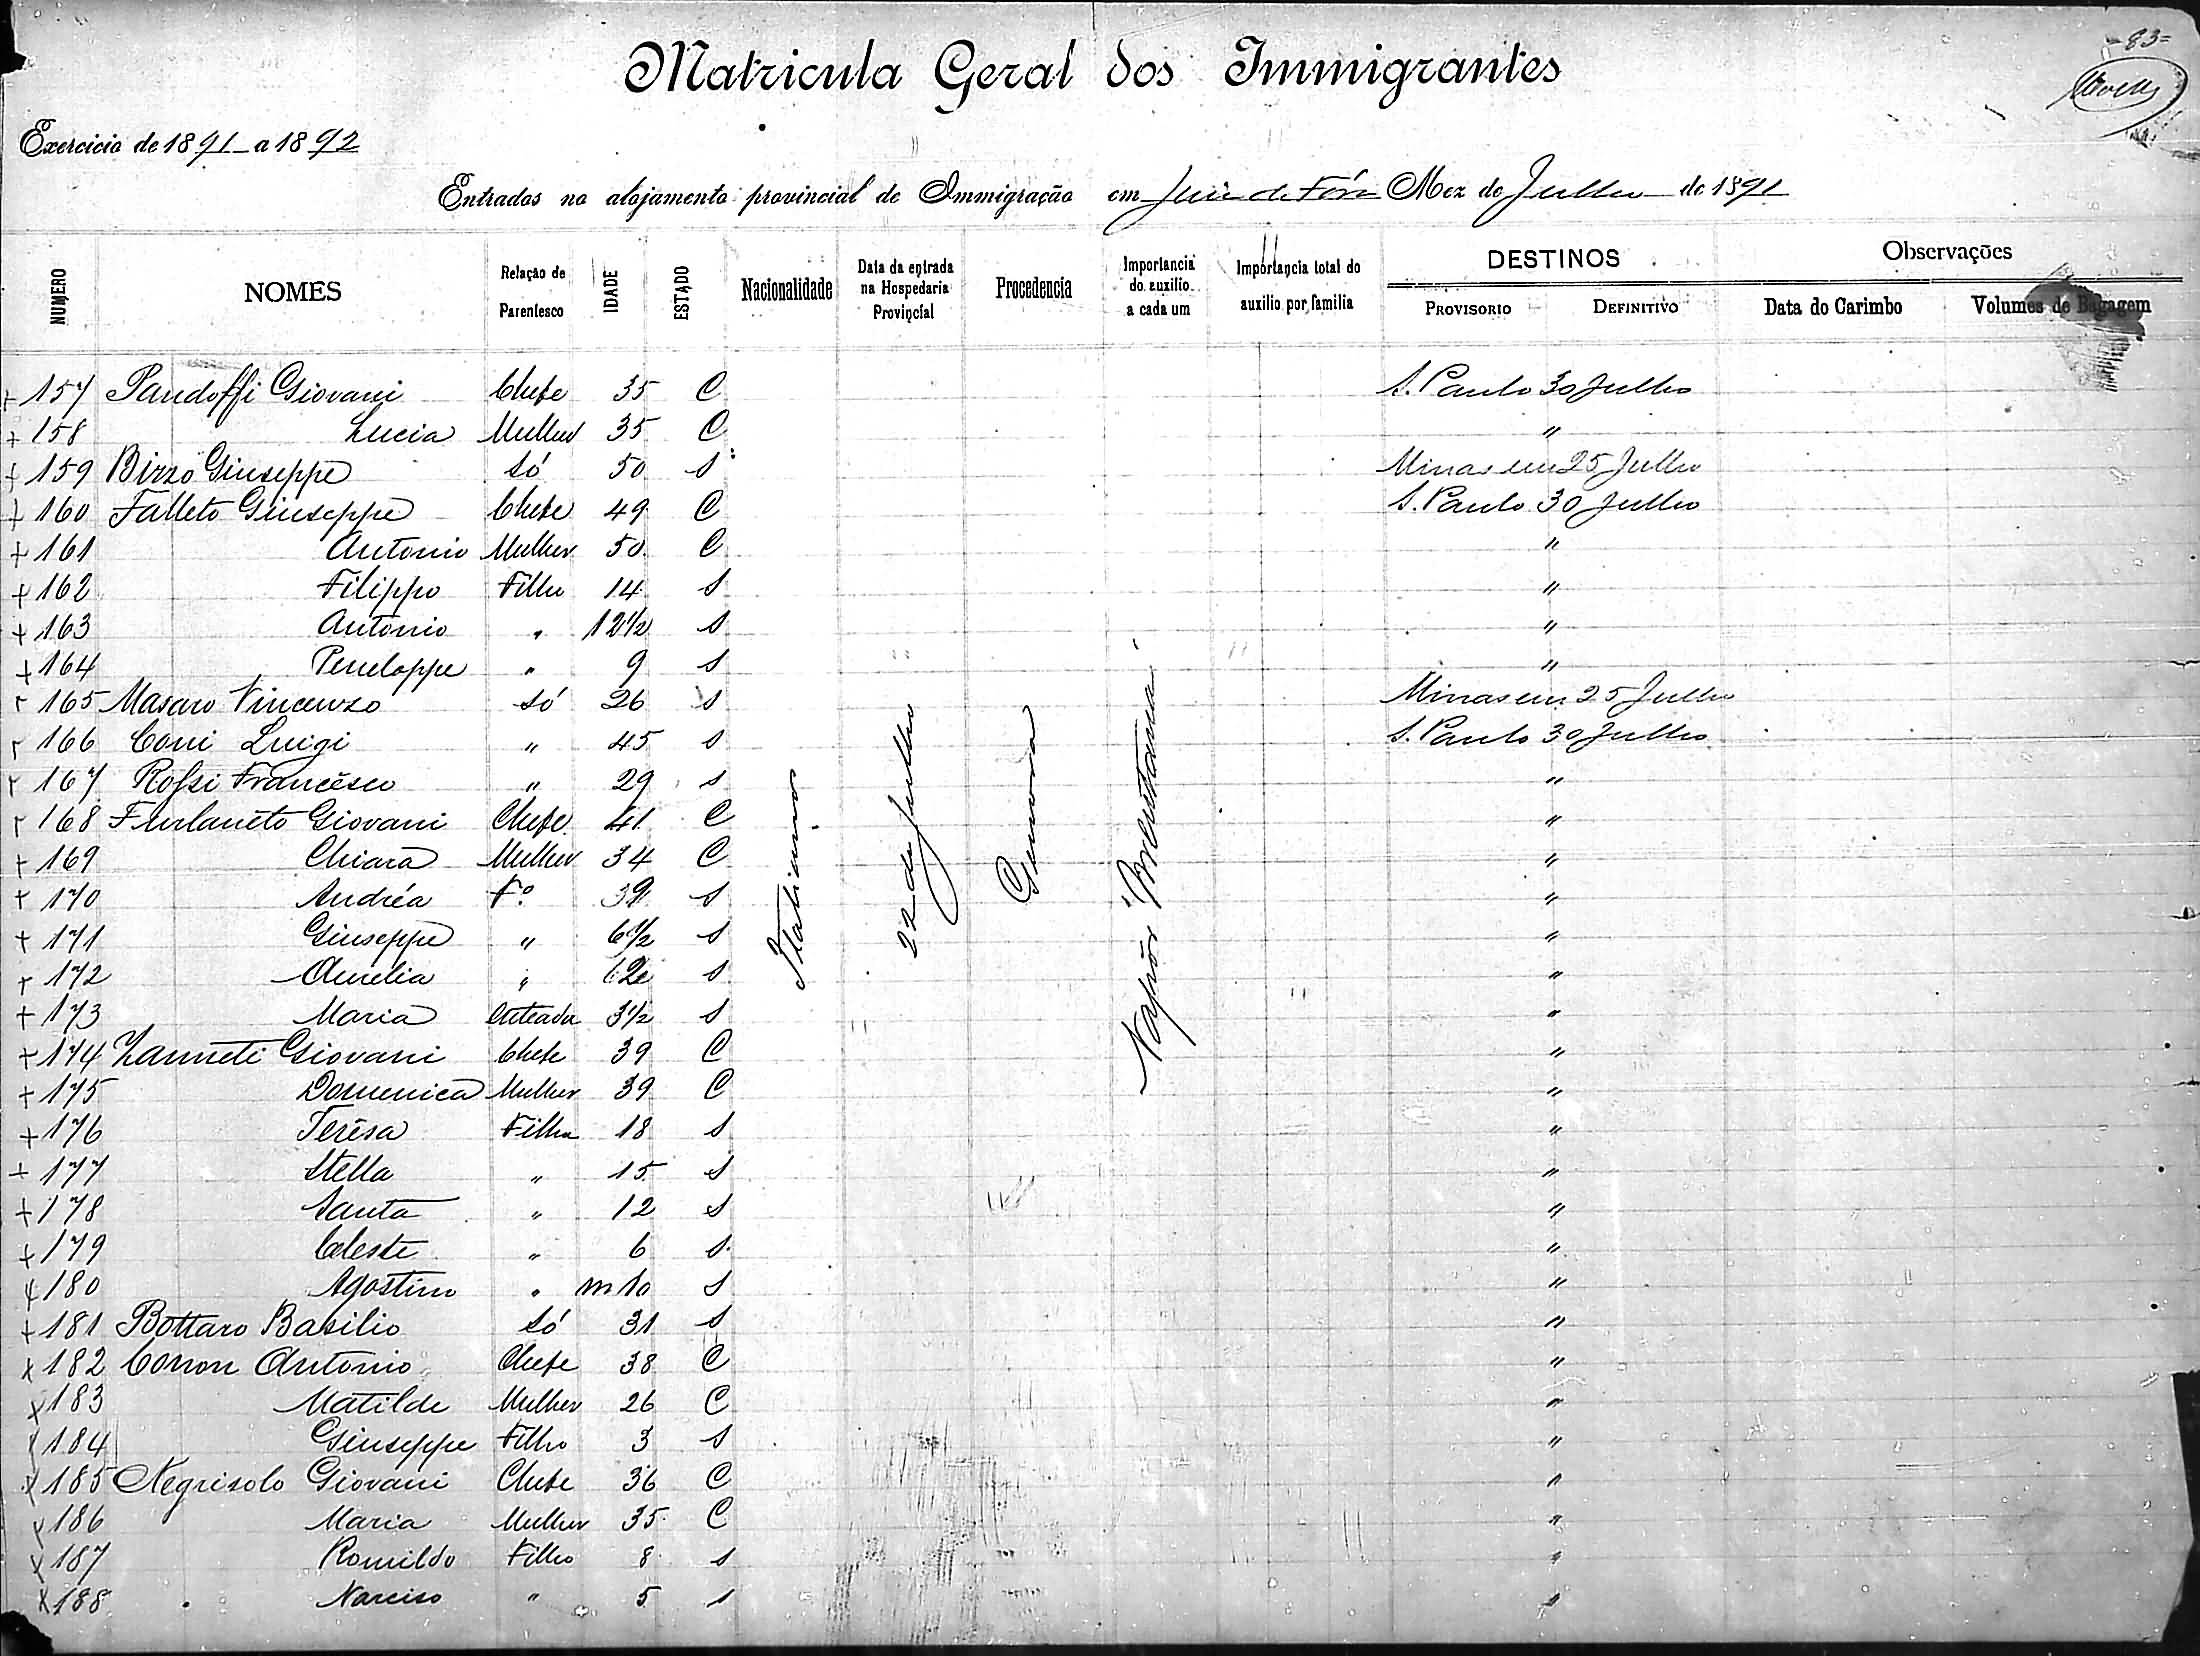 -83=
Matricula Geral dos Immigrantes
Exercicio de 1891 a 1892
Entrados no alojamento provincial de Immigração em Juiz de Fóra Mez de Julho de 1891
NUMERO NOMES Relação de Parentesco IDADE ESTADO Nacionalidade Data da entrada na Hospedaria Provincial Procedencia Importancia do auxilio a cada um Importancia total do auxilio por familia DESTINOS PROVISORIO DEFINITIVO Observações Data do Carimbo Volumes de Bagagem
157 Pandoffi Giovani Chefe 35 C S. Paulo 30 Julho
158 Lucia Mulher 35 C "
159 Bizzo Giuseppe Só 50 S Minas em 25 Julho
160 Falleto Giuseppe Chefe 49 C S. Paulo 30 Julho
161 Antonio Mulher 50 C "
162 Filippo Filho 14 S "
163 Antonio " 12 1/2 S "
164 Peneloppe " 9 S "
165 Masaro Vincenzo Só 26 S Minas em 25 Julho
166 Coni Luigi " 45 S S. Paulo 30 Julho
167 Rossi Francesco " 29 S "
168 Furlaneto Giovani Chefe 41 C "
169 Chiara Mulher 34 C "
170 Andréa Fo S "
171 Giuseppe " 6 1/2 S "
172 Aurelia " S "
173 Maria Enteada 3 1/2 S "
174 Zanneti Giovani Chefe 39 C "
175 Domenica Mulher 39 C "
176 Teresa Filha 18 S "
177 Stella " 15 S "
178 Santa " 12 S "
179 Celeste " 6 S "
180 Agostino " m 10 S "
181 Bottaro Basilio Só 31 S "
182 Conon Antonio Chefe 38 C "
183 Matilde Mulher 26 C "
184 Giuseppe Filho 3 S "
185 Negrisolo Giovani Chefe 36 C "
186 Maria Mulher 35 C "
187 Romildo Filho 8 S "
188 Narciso " 5 S "
Italiana
22 de Julho
Genova
Vapor